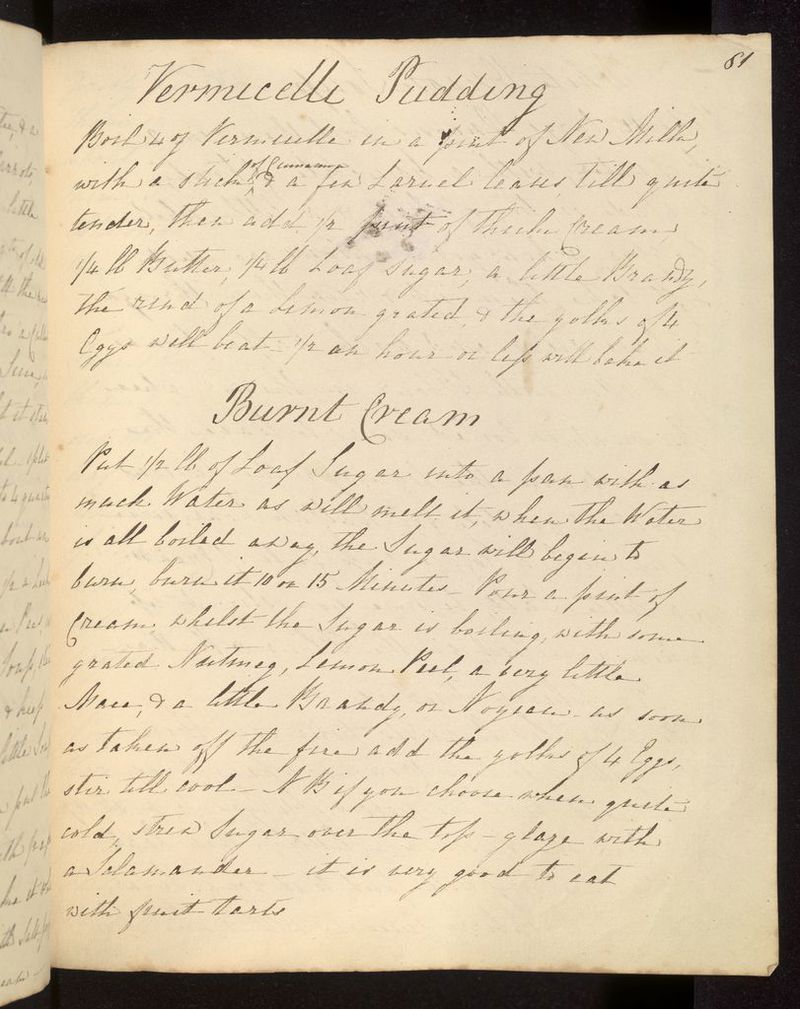 81
Vermicelli Pudding
Boil 4 oz Vermicelle in a pint of New Milk,
with a stick of Cinnamon & a few Laruel leaves till quite
tender, then add 1/2 pint of thick Cream,
1/4 lb Butter, 1/4 lb Loaf Sugar, a little Brandy,
the rind of a Lemon grated & the yolks of 4
Eggs well beat - 1/2 an hour or less will bake it
Burnt Cream
Put 1/2 lb of Loaf Sugar into a pan with as
much Water as will melt it, when the Water
is all boiled away, the Sugar will begin to
burn, burn it 10 or 15 Minutes - Pour a pint of
Cream whilst the Sugar is boiling, with some
grated Nutmeg, Lemon Peel, a very little
Mace, & a little Brandy, or Noyeau - as soon
as taken off the fire add the yolks of 4 Eggs,
stir till cool - NB if you choose when quite
cold, strew Sugar over the top - glaze with
a Salamander - it is very good to eat
with fruit tarts